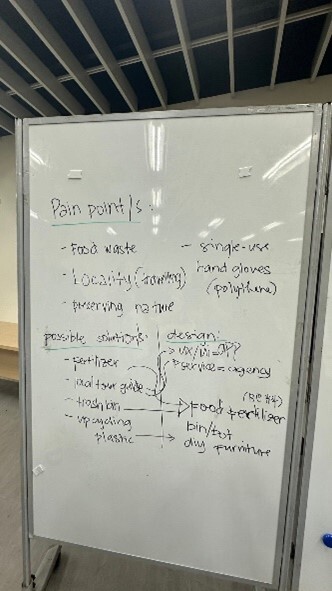 Pain point/s:
- Food waste
- Locality (traveling)
- preserving nature
- single-use
hand gloves
(polythene)
possible solutions:
- fertilizer
- local tour guide
- trash bin
- upcycling
plastic
design:
> UX/UI = app
> service = agency
Food fertilizer
bin/pot
diy furniture